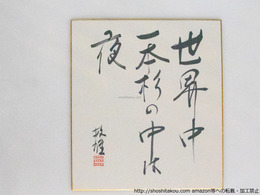 世界中
一本杉の中は
夜
http://shoshitakou.com amazon等への転載・加工禁止